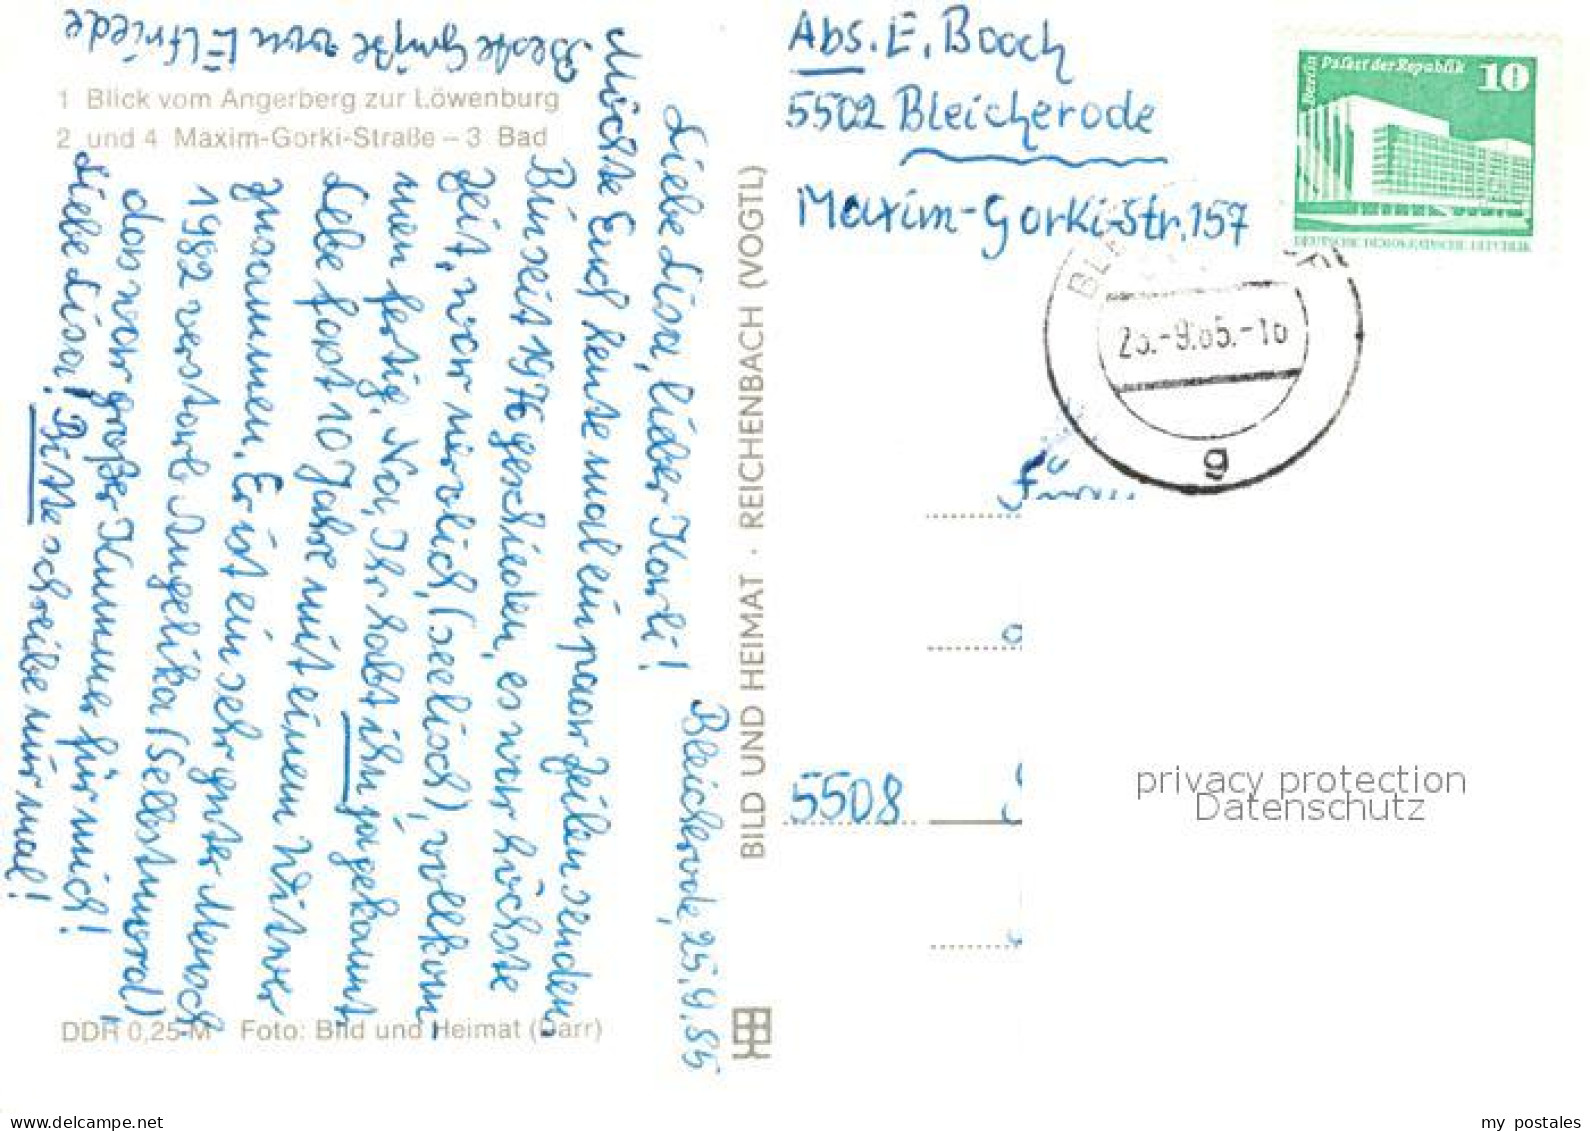 Bleicherode, 25.9.85
Liebe Lisa, lieber Karli!
Möchte Euch heute mal ein paar Zeilen senden.
Bin seit 1976 geschieden, es war höchste
Zeit, war nervlich, (seelisch), vollkom
men fertig. Na, Ihr habt ihn ja gekannt.
Lebe fast 10 Jahre mit einem Witwer
zusammen. Er ist ein sehr guter Mensch
1982 verstarb Angelika (Selbstmord)
das war großer Kummer für mich!
Liebe Lisa! Bitte schreibe mir mal!
Beste Grüße von Elfriede
1 Blick vom Angerberg zur Löwenburg
2 und 4 Maxim-Gorki-Straße – 3 Bad
DDR 0,25 M Foto: Bild und Heimat (Darr)
BILD UND HEIMAT · REICHENBACH (VOGTL)
Abs. E. Booch
5502 Bleicherode
Maxim-Gorki-Str. 157
Berlin Palast der Republik 10
-9.85.-16
g
Frau
5508
privacy protection
Datenschutz
www.delcampe.net
my_postales